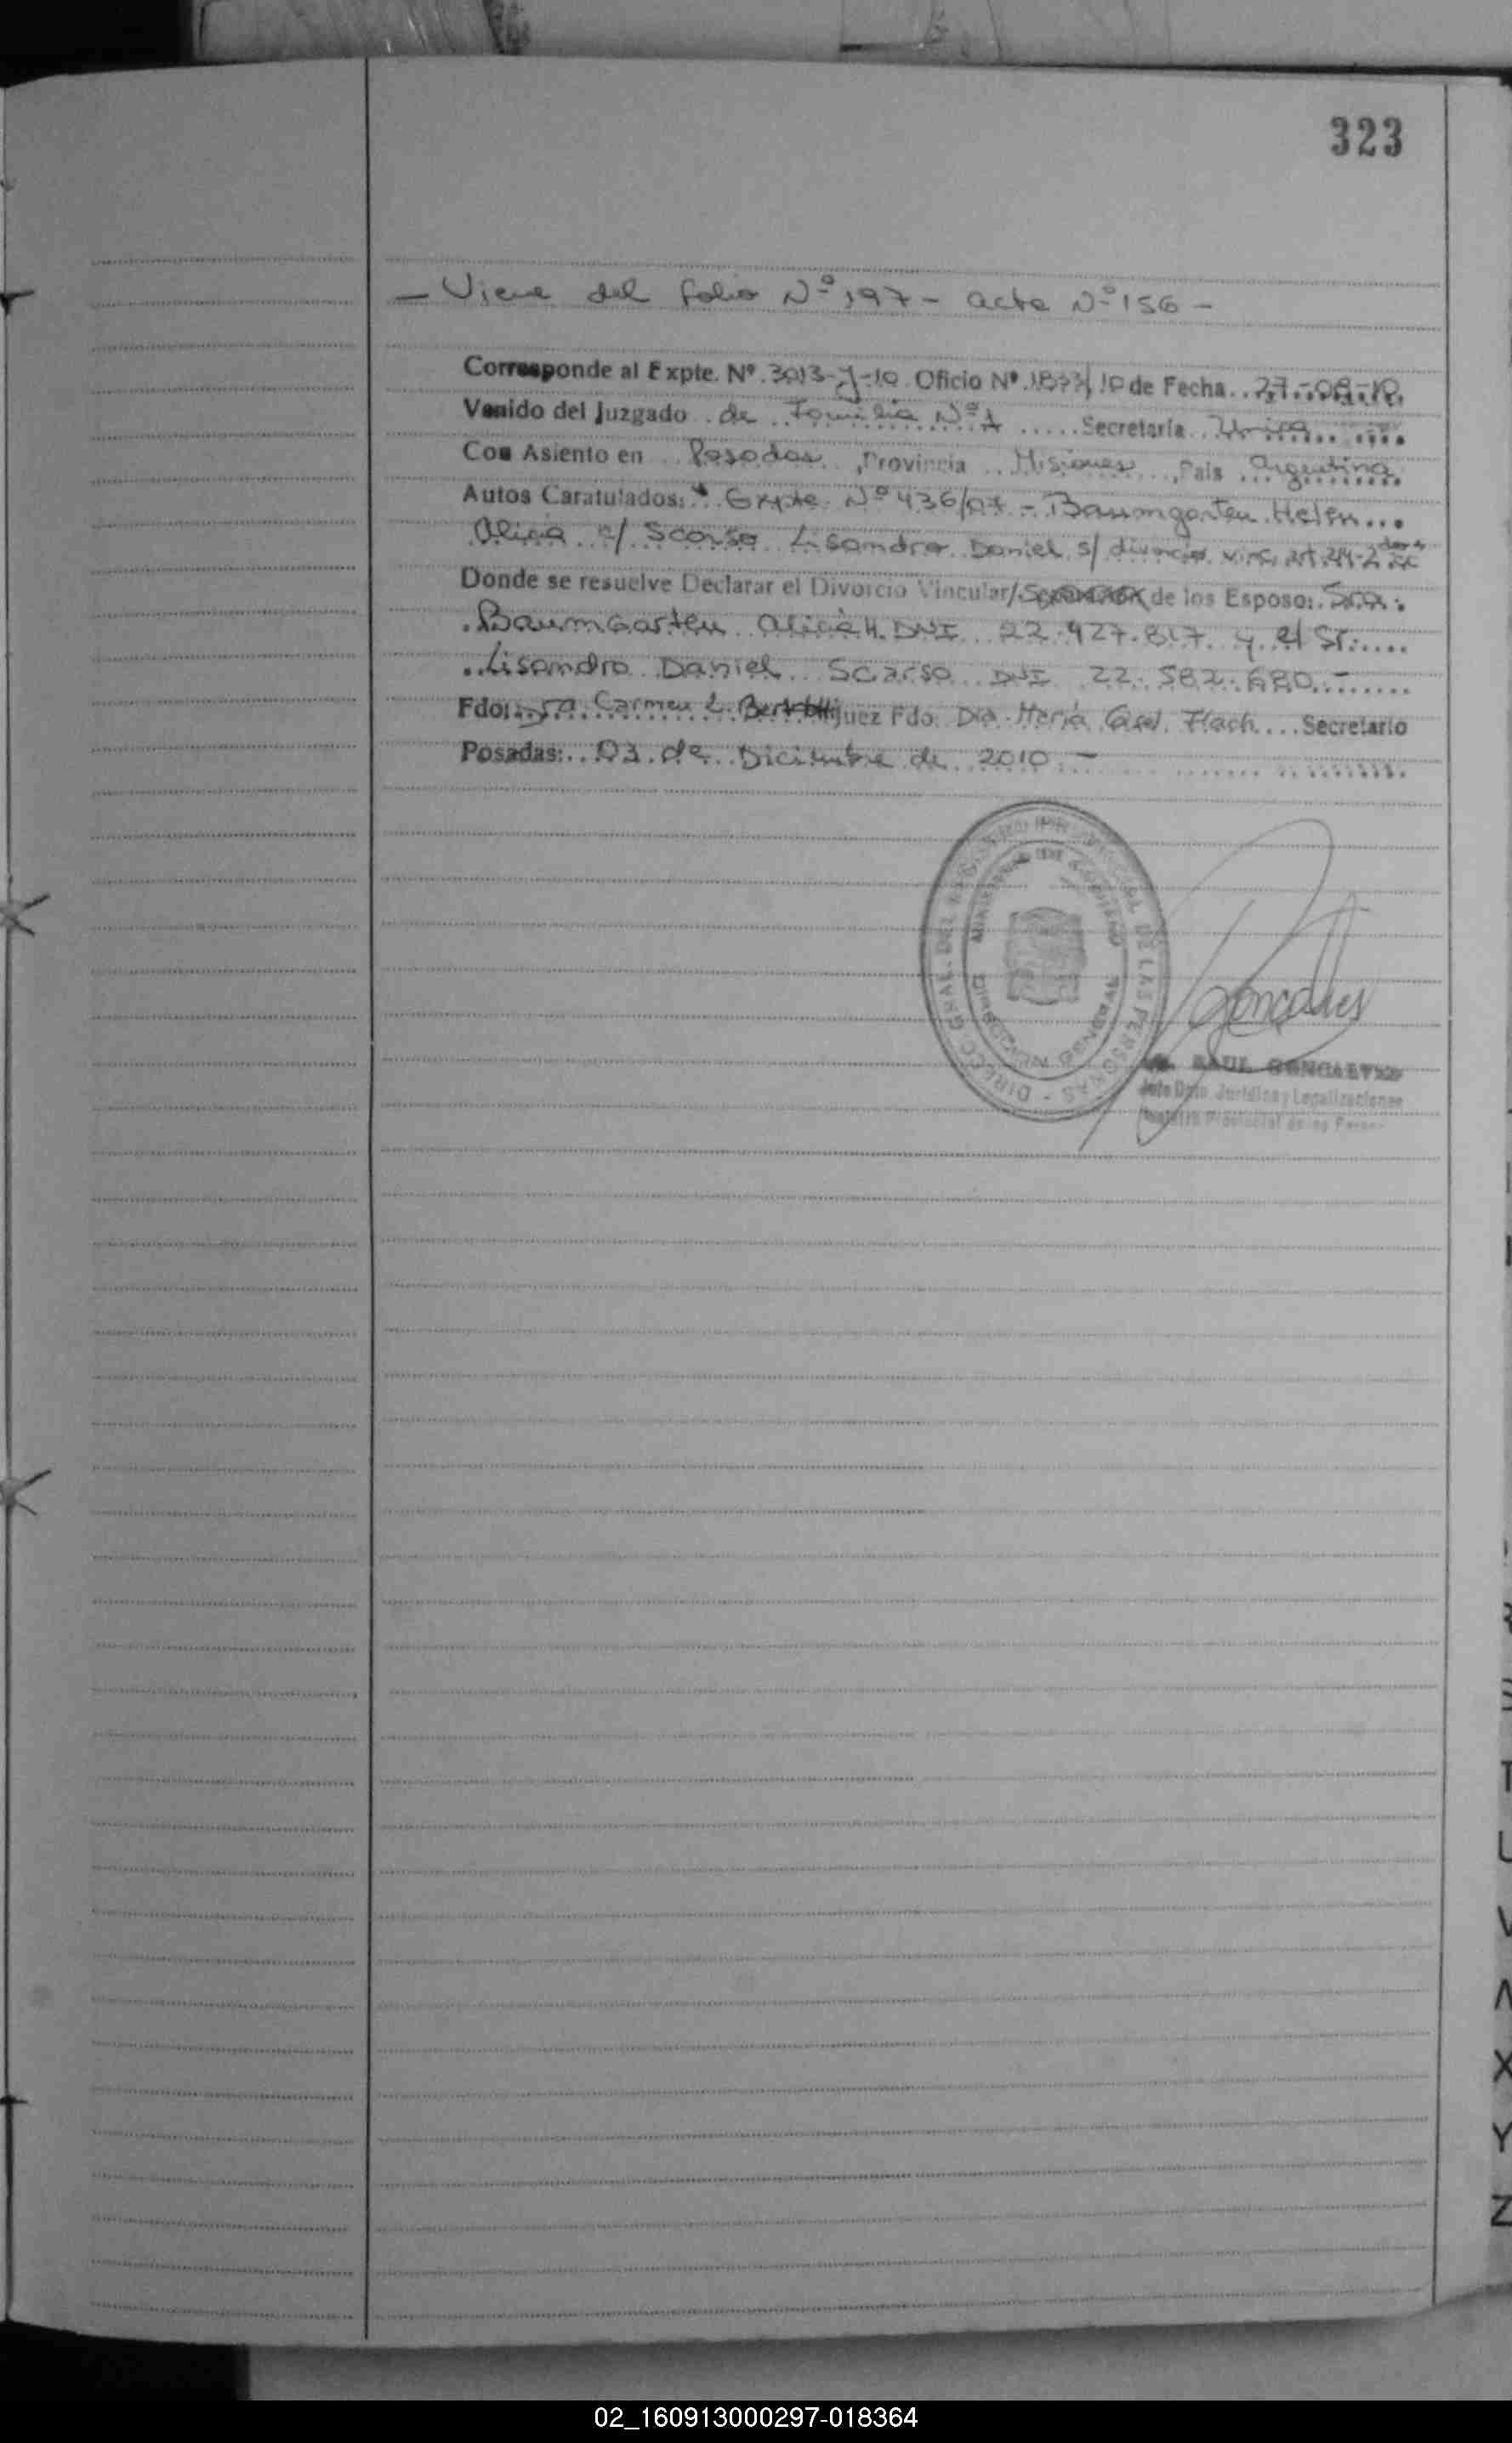 323
— Viene del folio Nº 197 - acta Nº 156 -
Corresponde al Expte. Nº 3013-J-10 Oficio Nº 1873/10 de Fecha 27-08-10
Venido del Juzgado de Familia Nº 1 Secretaría Unica
Con Asiento en Posadas, Provincia Misiones, País Argentina
Autos Caratulados: "Expte Nº 436/07 - Baumgarten Helen
Alicia c/ Scarso Lisandro Daniel s/ divorcio vinc. art. 214-2
Donde se resuelve Declarar el Divorcio Vincular/ de los Esposo: Sra.
Baumgarten Alicia H. DNI 22.927.817 y el Sr.
Lisandro Daniel Scarso DNI 22.582.680.-
Fdo: Carmen L. Juez Fdo. Dra. María Flach Secretario
Posadas: 03 de Diciembre de 2010 -
DIRECC. GRAL. DEL REGISTRO PROVINCIAL DE LAS PERSONAS -
MINISTERIO DE GOBIERNO
DIRECCION GENERAL
Goncalves
RAUL GONCALVES
Jefe Dpto. Jurídico y Legalizaciones
Provincial de las
R
S
T
U
V
X
Y
Z
02_160913000297-018364